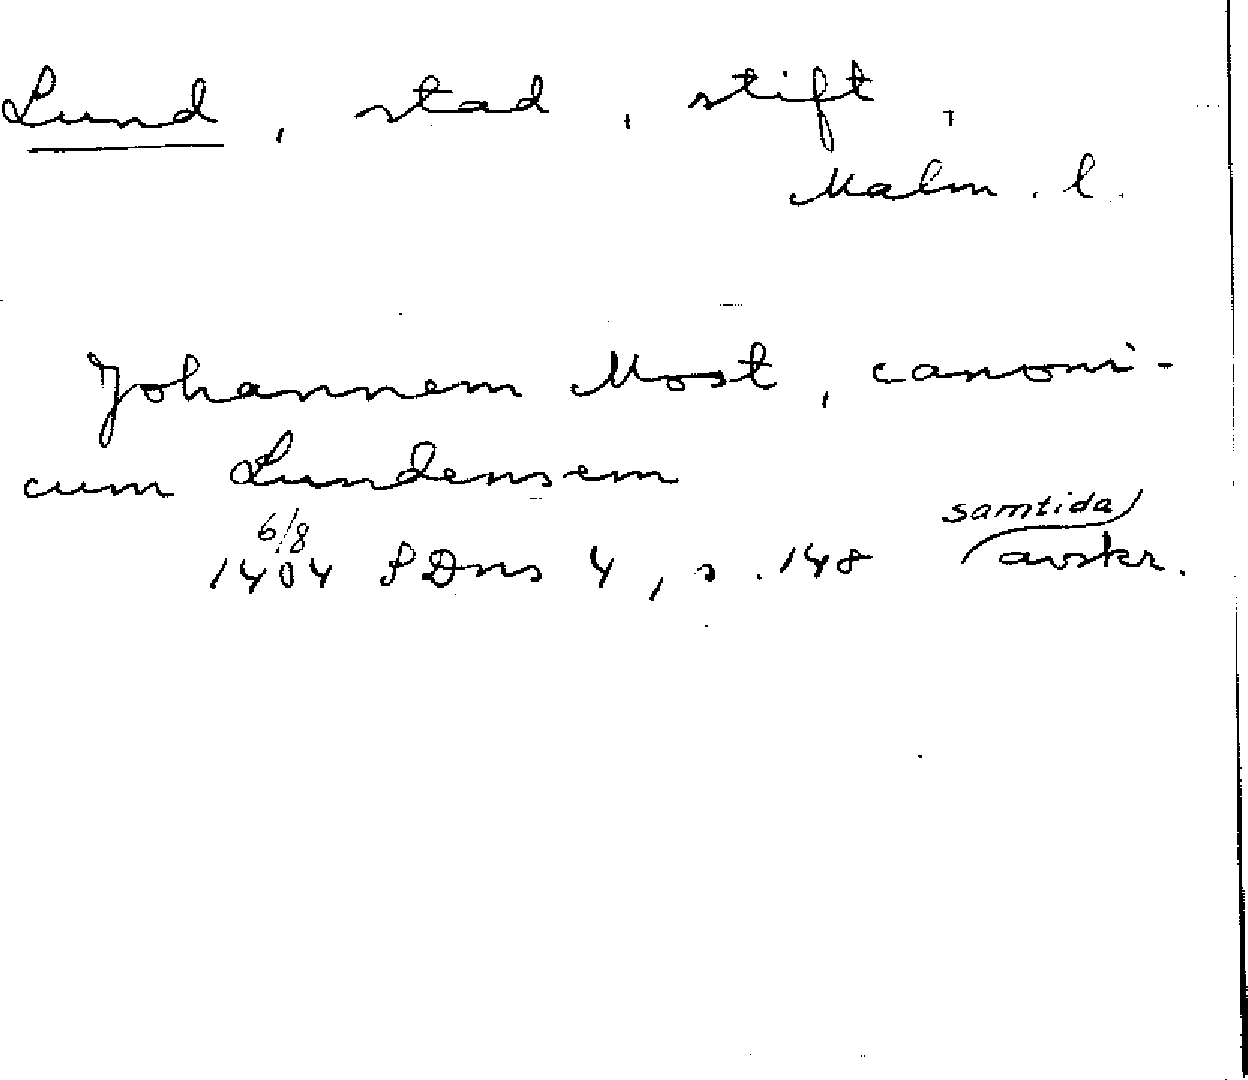 Lund, stad, stift,
Malm. l.
Johannem Most, canoni-
cum Lundensem
6/8
samtida
1404 SDns 4, s. 148 avskr.